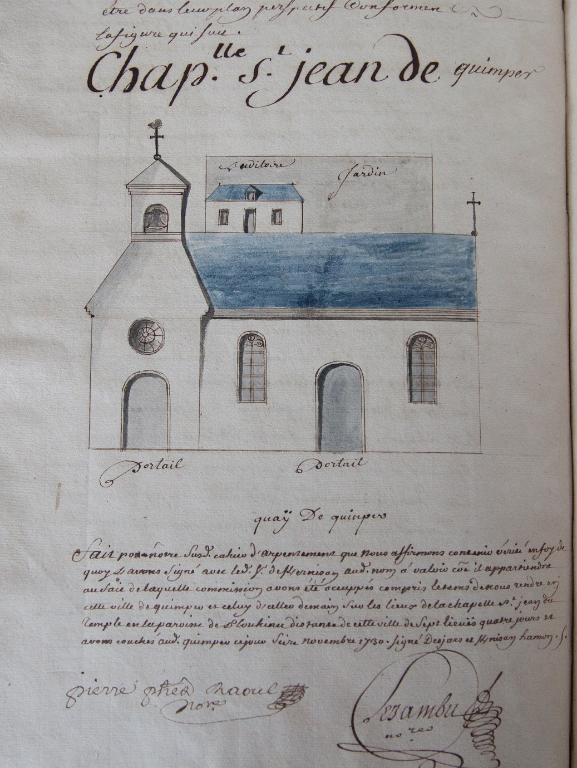 être dans leur plan perspectif Conformement a
la figure qui suit.
Chap.lle S.t jean de quimper
auditoire
Jardin
portail
portail
quaÿ De quimper
Fait par notre Susd. cahier d'arpentement que nous affirmons contenir vérité en foy de
quoy L'avons Signé avec led. S.r de Kernison aud. nom a valoir coê il appartiendra
au Saic de laquelle commission avons été occuppés compris le tems de nous rendre en
cette ville de quimper et celuy d'aller demain Sur les lieux de la chapelle S.t jean du
temple en la paroisse de Plouhinec distante de cette ville de Sept lieües quatre jours et
avons couchés aud. quimper ce jour Seize novembre 1730. Signé Dejars et Kmison hamon.
pierre Raoul
nore
Lezambu
no res